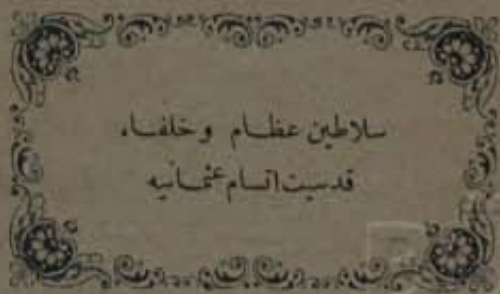 سلاطين عظام و خلفاء
قدسيت اتسام عثمانيه